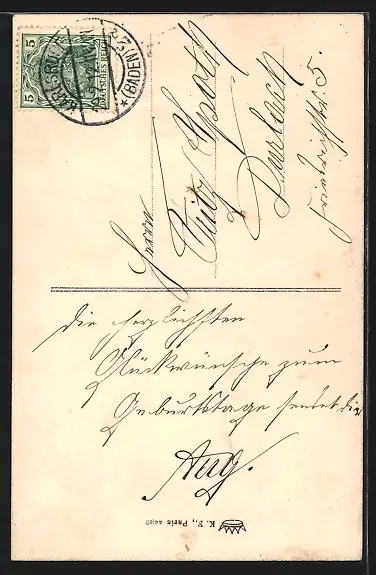 Herrn
Fritz Spoth
Durlach
Friedrichstr. 5.
Die herzlichsten
Glückwünsche zum
Geburtstage sendet dir
Aug.
K. F., Paris 4492
5 5
DEUTSCHES REICH
KARLSRUHE
(BADEN)